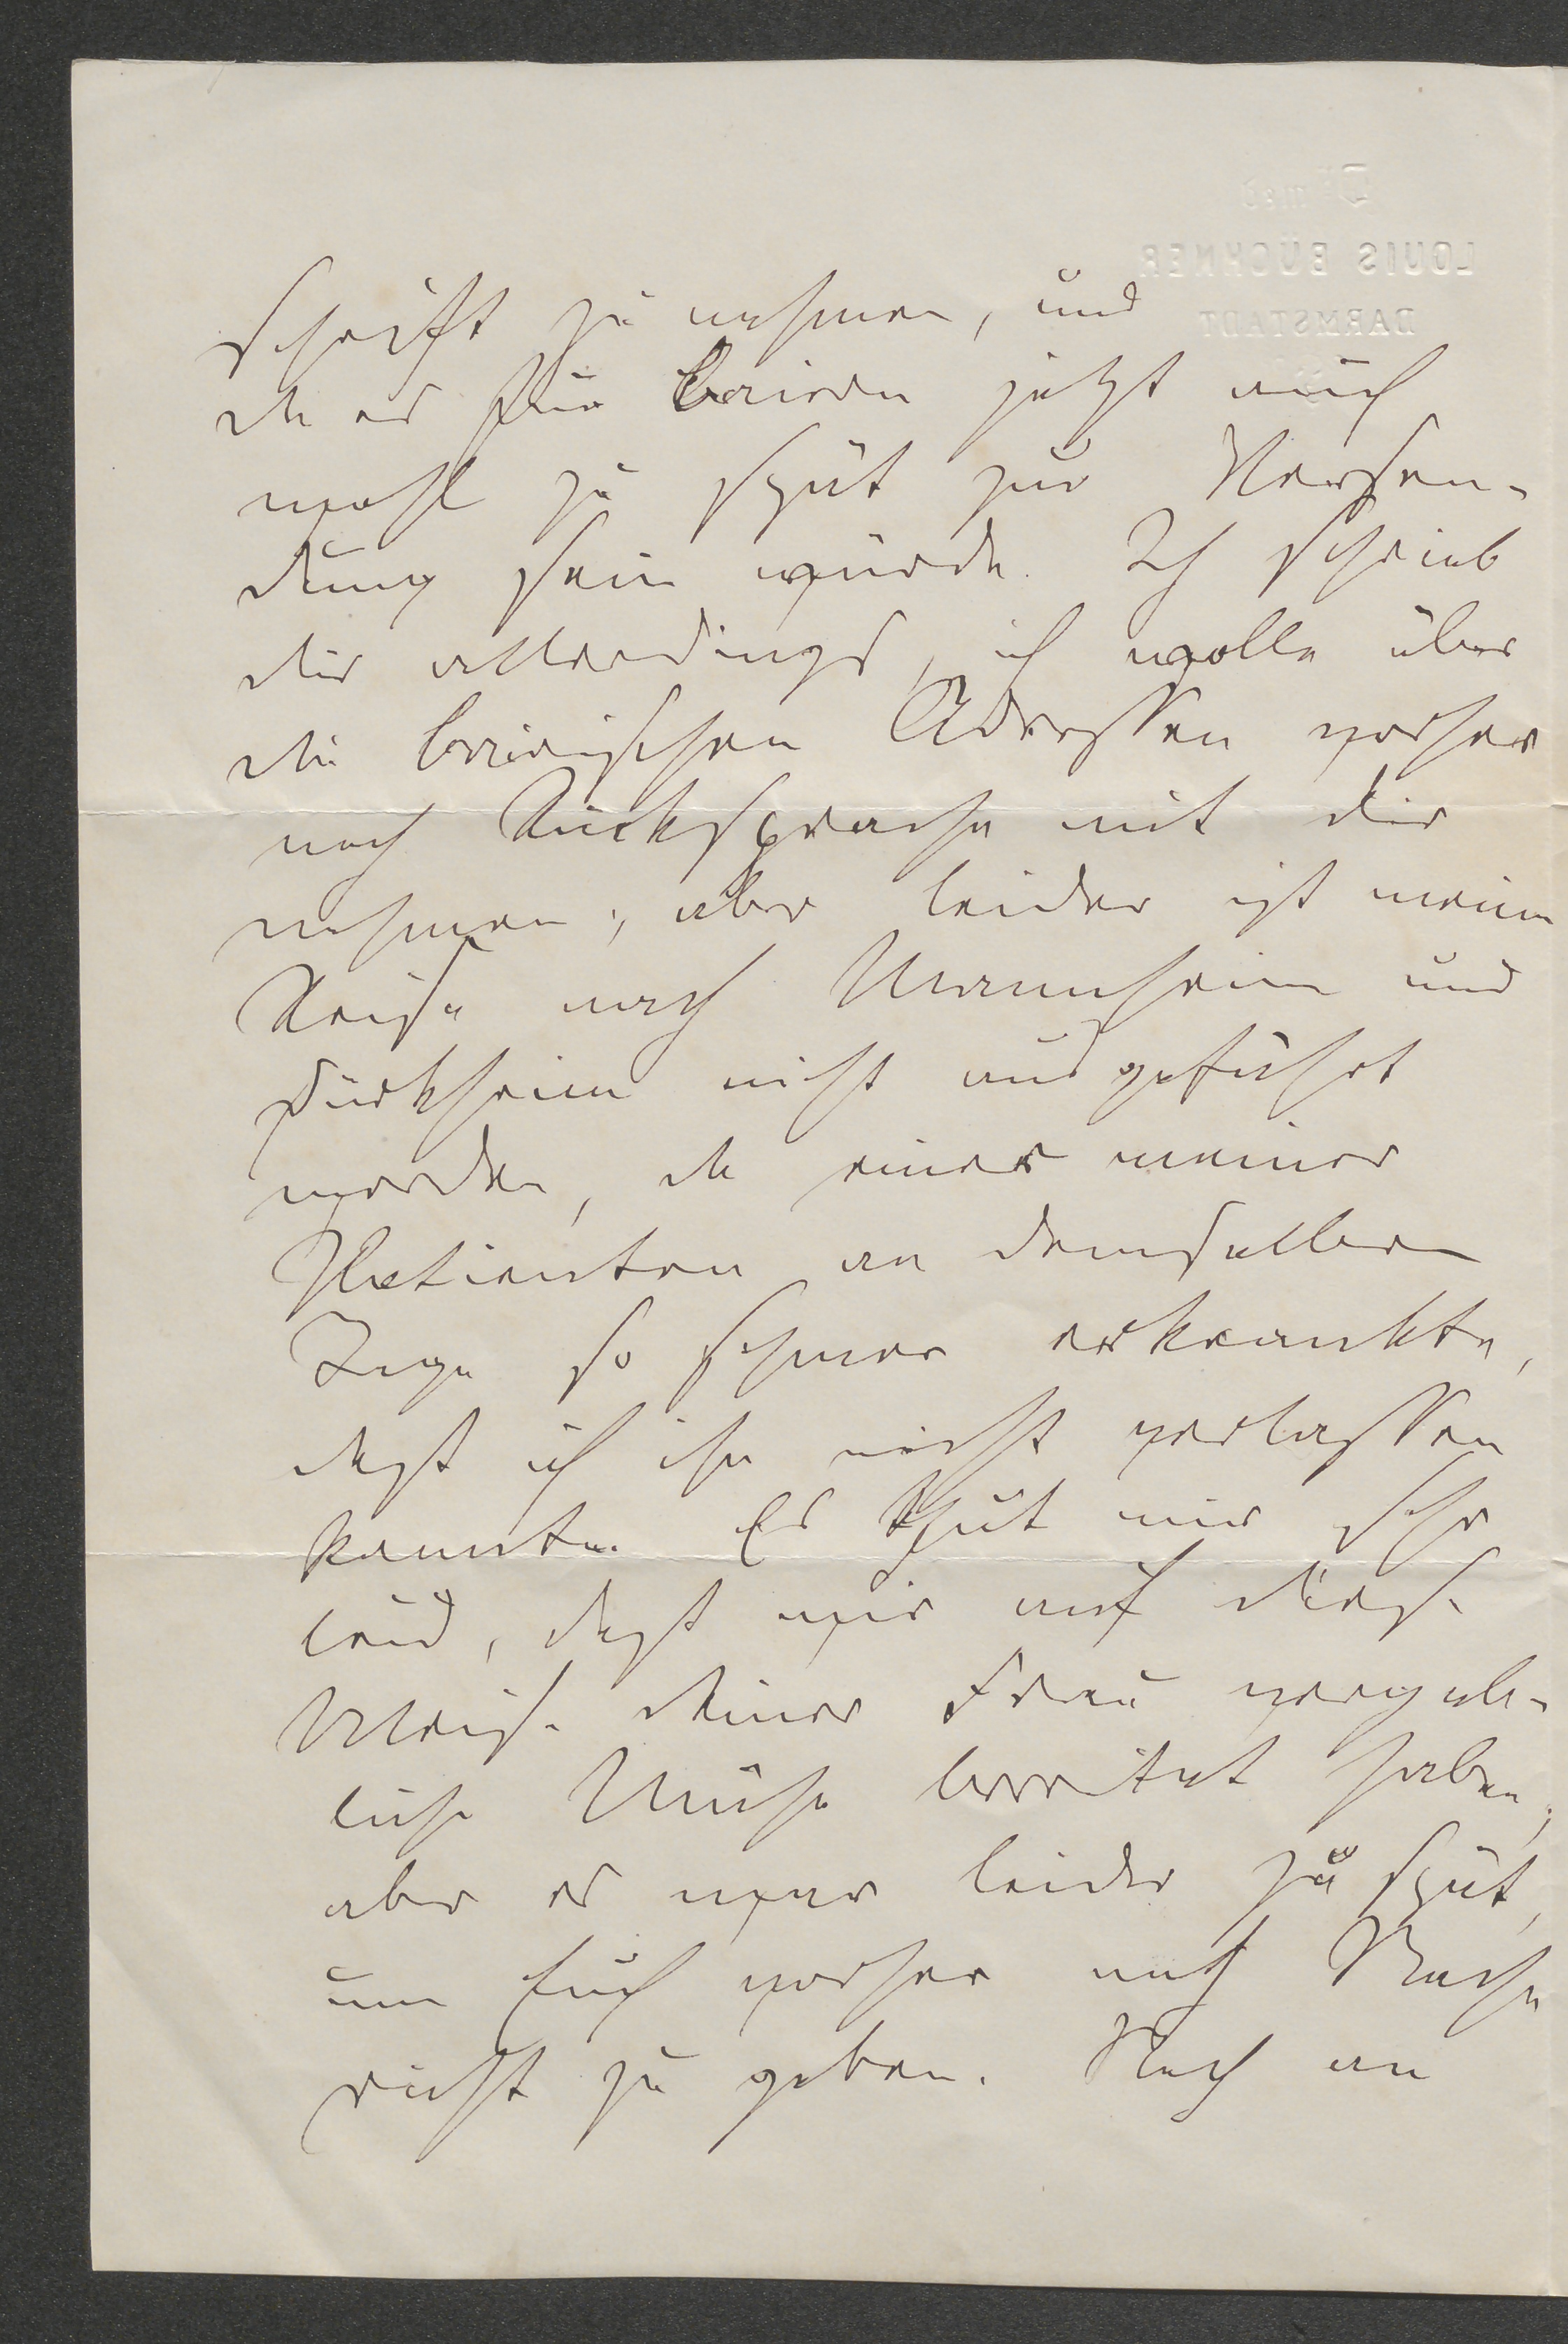 Dr. med.
LOUIS BÜCHNER
DARMSTADT
schrift zu nehmen, und
da es für Baiern jetzt auch
wohl zu spät zur Versen-
dung sein würde. Ich schrieb
dir allerdings, ich wolle über
die bairischen Adressen vorher
noch Rücksprache mit dir
nehmen; aber leider ist meine
Reise nach Mannheim und
Dürkheim nicht ausgeführt
worden, da einer meiner
Patienten an demselben
Tage so schwer erkrankte,
daß ich ihn nicht verlassen
konnte. Es thut mir sehr
leid, daß wir auf diese
Weise deiner Frau vergeb-
liche Mühe bereitet haben;
aber es war leider zu spät,
um Euch vorher noch Nach-
richt zu geben. Noch an